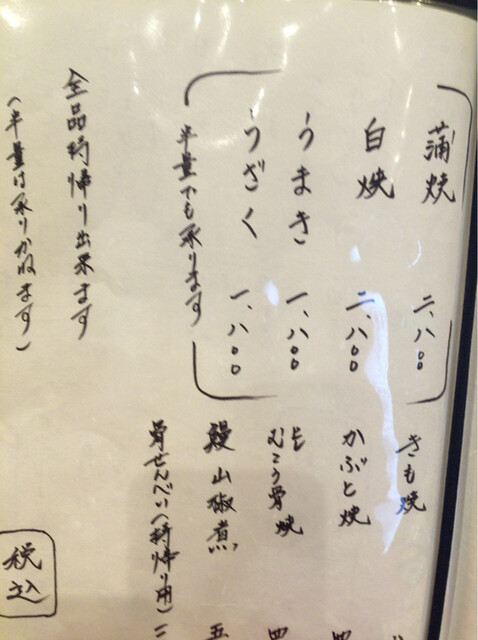 蒲焼 二、八〇〇
白焼 二、八〇〇
うまき 一、八〇〇
うざく 一、八〇〇
半量でも承ります
全品持帰り出来ます
(半量は承りかねます)
きも焼
かぶと焼
焼
鰻山椒煮
骨せんべい(持帰り用)
税込